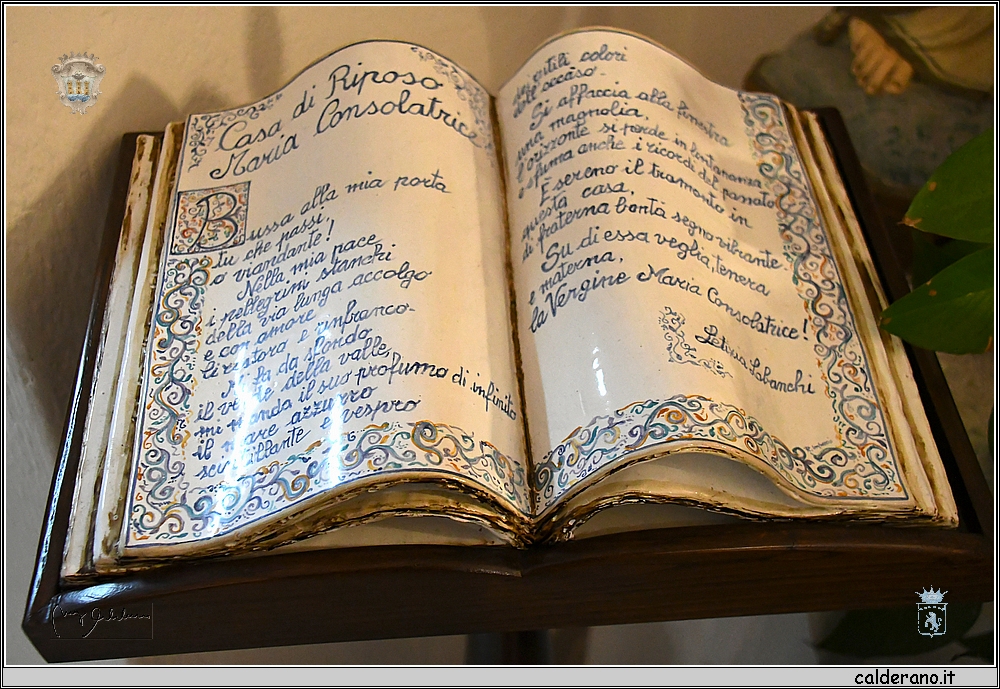 Casa di Riposo
Maria Consolatrice
Bussa alla mia porta
tu che passi,
o viandante!
Nella mia pace
i pellegrini stanchi
della via lunga accolgo
e con amore
li ristora e rinfranco.
Mi fa da sfondo
il verde della valle,
mi manda il suo profumo di infinito
il mare azzurro
scintillante e vespro
colori
dell'occaso.
Si affaccia alla finestra
una magnolia,
l'orizzonte si perde in lontananza
e sfuma anche i ricordi del passato
È sereno il tramonto in
questa casa,
di fraterna bontà segno vibrante.
Su di essa veglia, tenera
e materna,
la Vergine Maria Consolatrice!
Letizia Labanchi
calderano.it